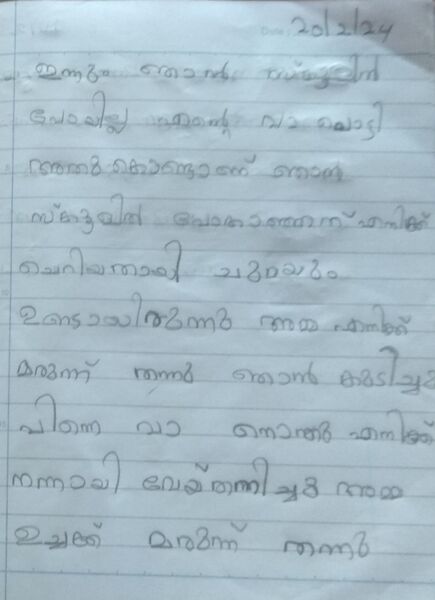 20/2/24
ഇന്നും ഞാൻ സ്കൂളിൽ
പോയില്ല എന്റെ വാ പൊട്ടി
അതുകൊണ്ടാണ് ഞാൻ
സ്കൂളിൽ പോകാഞ്ഞത് എനിക്ക്
ചെറിയതായി ചുമയും
ഉണ്ടായിരുന്നു അമ്മ എനിക്ക്
മരുന്ന് തന്നു ഞാൻ കുടിച്ചു
പിന്നെ വാ നൊന്തു എനിക്ക്
നന്നായി വേയ്തനിച്ചു അമ്മ
ഉച്ചക്ക് മരുന്ന് തന്നു